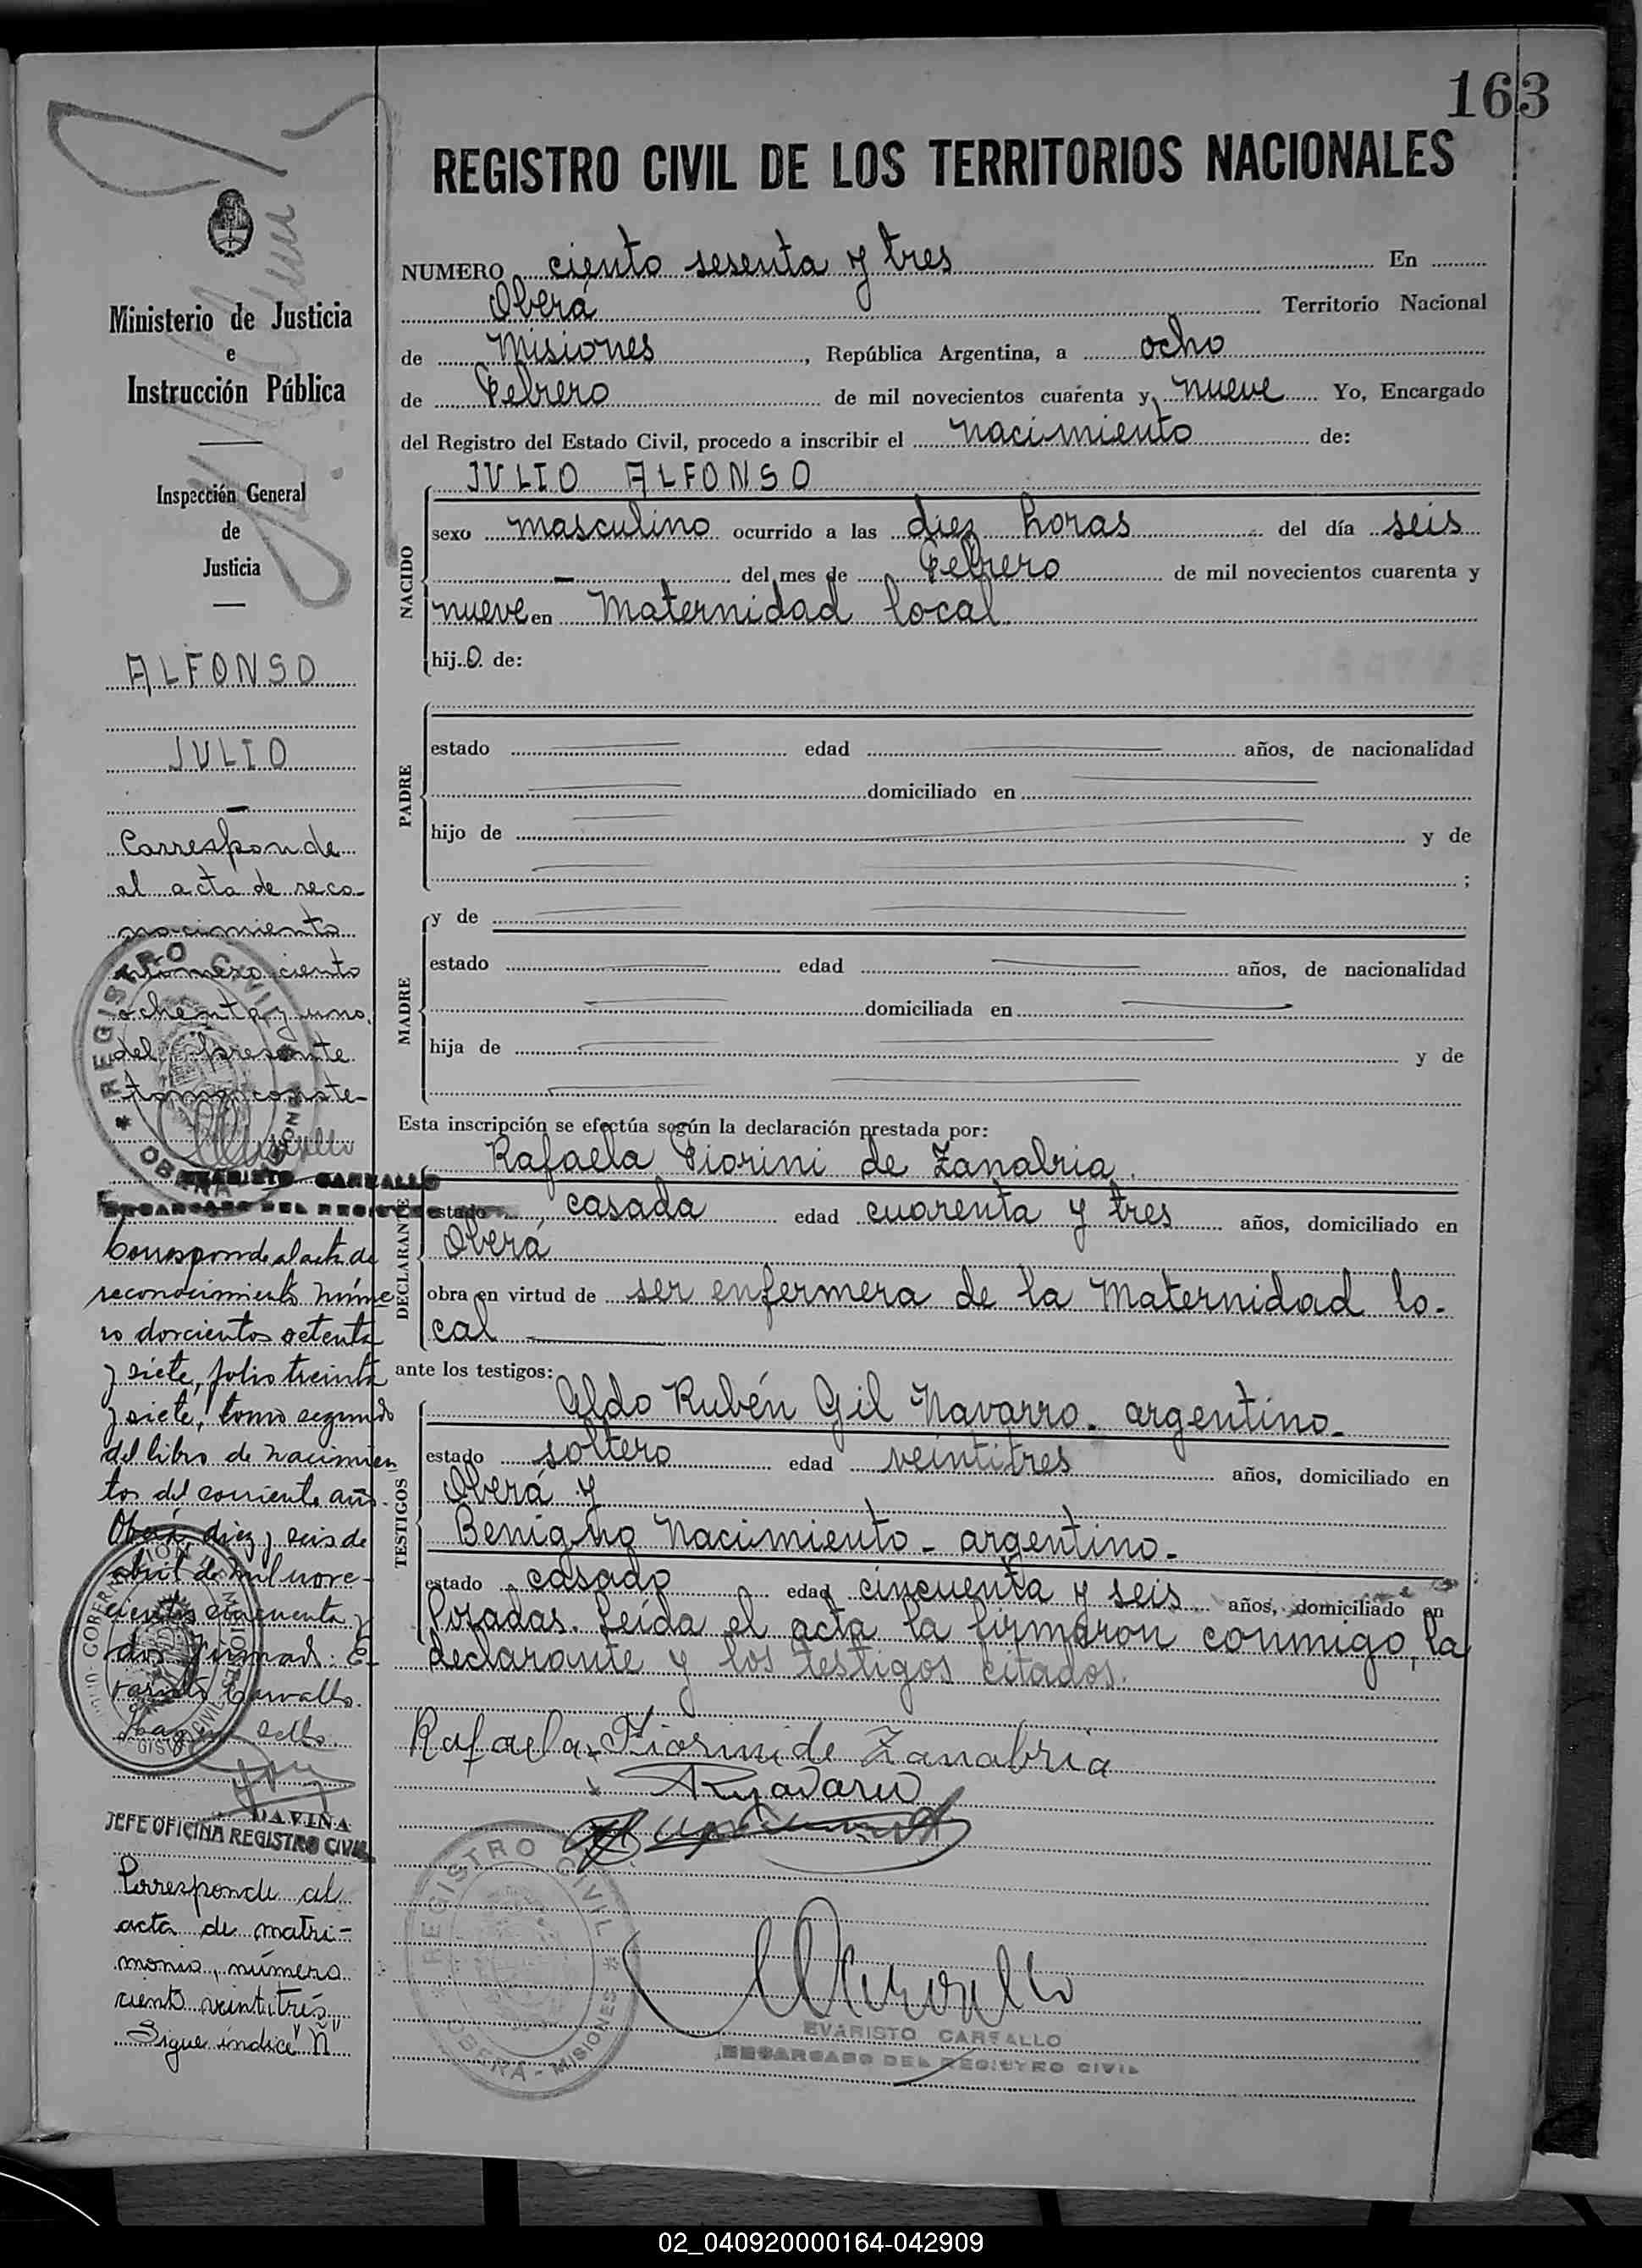 163
REGISTRO CIVIL DE LOS TERRITORIOS NACIONALES
NUMERO ciento sesenta y tres En
Oberá Territorio Nacional
de Misiones, República Argentina, a ocho
de Febrero de mil novecientos cuarenta y nueve Yo, Encargado
del Registro del Estado Civil, procedo a inscribir el nacimiento de:
JULIO ALFONSO
NACIDO
sexo masculino ocurrido a las diez horas del día seis
— del mes de Febrero de mil novecientos cuarenta y
nueve en Maternidad local.
hijo de:
PADRE
estado edad años, de nacionalidad
domiciliado en
hijo de y de
;
MADRE
y de
estado edad años, de nacionalidad
domiciliada en
hija de y de
Esta inscripción se efectúa según la declaración prestada por:
DECLARANTE
Rafaela Fiorini de Zanabria.
estado casada edad cuarenta y tres años, domiciliado en
Oberá
obra en virtud de ser enfermera de la Maternidad lo-
cal
ante los testigos:
TESTIGOS
Aldo Rubén Gil Navarro. argentino.
estado soltero edad veintitres años, domiciliado en
Oberá y
Benigno Nacimiento - argentino.
estado casado edad cincuenta y seis años, domiciliado en
Posadas. Leída el acta la firmaron conmigo, la
declarante y los testigos citados.
Rafaela Fiorini de Zanabria
REGISTRO CIVIL
OBERA - MISIONES
EVARISTO CARVALLO
ENCARGADO DEL REGISTRO CIVIL
Ministerio de Justicia
e
Instrucción Pública
Inspección General
de
Justicia
ALFONSO
JULIO
—
Corresponde
al acta de reco-
nocimiento
número ciento
ochenta y uno
del presente
tomo conste-
REGISTRO CIVIL
EVARISTO CARVALLO
ENCARGADO DEL REGISTRO
Corresponde al acta de
reconocimiento núme
ro doscientos setenta
y siete, folio treinta
y siete, tomo segundo
del libro de nacimien
tos del corriente año.
Oberá, diez y seis de
abril de mil nove-
cientos cincuenta y
dos Firmado: E-
varisto Carvallo.
Hay un sello.
DAVIÑA
JEFE OFICINA REGISTRO CIVIL
Corresponde al
acta de matri-
monio, número
ciento veintitrés
Sigue índice "Ñ"
02_040920000164-042909